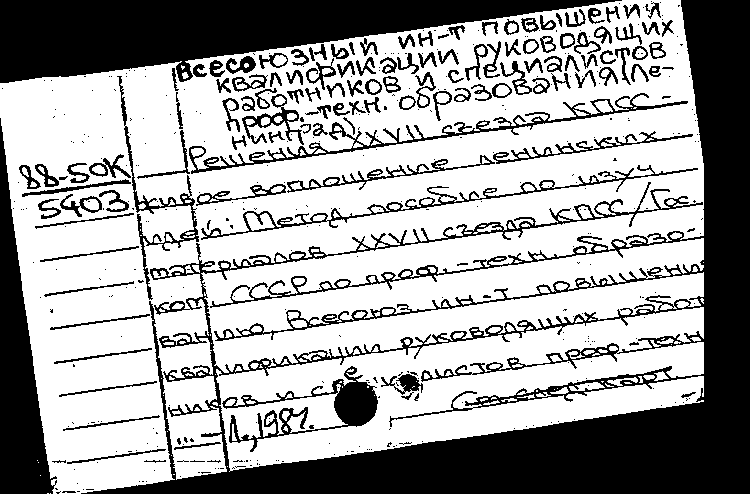 Всесоюзный ин-т повышения
квалификации руководящих
работников и специалистов
проф.-техн. образования (Ле-
нинград)
Решения XXVII съезда КПСС -
88-50К
живое воплощение ленинских
5403
идей: Метод. пособие по изуч.
материалов XXVII съезда КПСС/Гос.
ком. СССР по проф.-техн. образо-
ванию, Всесоюз. ин-т повышения
квалификации руководящих работ
ников и специалистов проф.-техн
... - Л., 1987.
См. след. карт